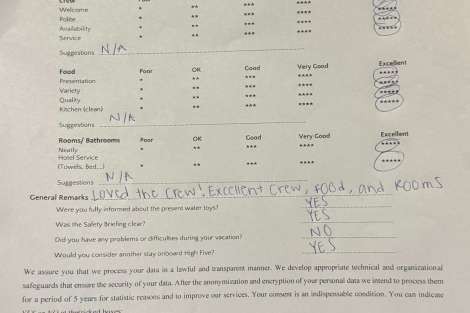 Crew * ** *** ****
Welcome * ** *** **** *****
Polite * ** *** **** *****
Availability * ** *** **** *****
Service * ** *** **** *****
Suggestions N/A
Food Poor OK Good Very Good Excellent
Presentation * ** *** **** *****
Variety * ** *** **** *****
Quality * ** *** **** *****
Kitchen (clean) * ** *** **** *****
Suggestions N/A
Rooms/ Bathrooms Poor OK Good Very Good Excellent
Neatly * ** *** **** *****
Hotel Service
(Towels, Bed,...) * ** *** **** *****
Suggestions N/A
General Remarks Loved the Crew! Excellent Crew, Food, and Rooms
Were you fully informed about the present water toys? YES
Was the Safety Briefing clear? YES
Did you have any problems or difficulties during your vacation? NO
Would you consider another stay onboard High Five? YES
We assure you that we process your data in a lawful and transparent manner. We develop appropriate technical and organizational
safeguards that ensure the security of your data. After the anonymization and encryption of your personal data we intend to process them
for a period of 5 years for statistic reasons and to improve our services. Your consent is an indispensable condition. You can indicate